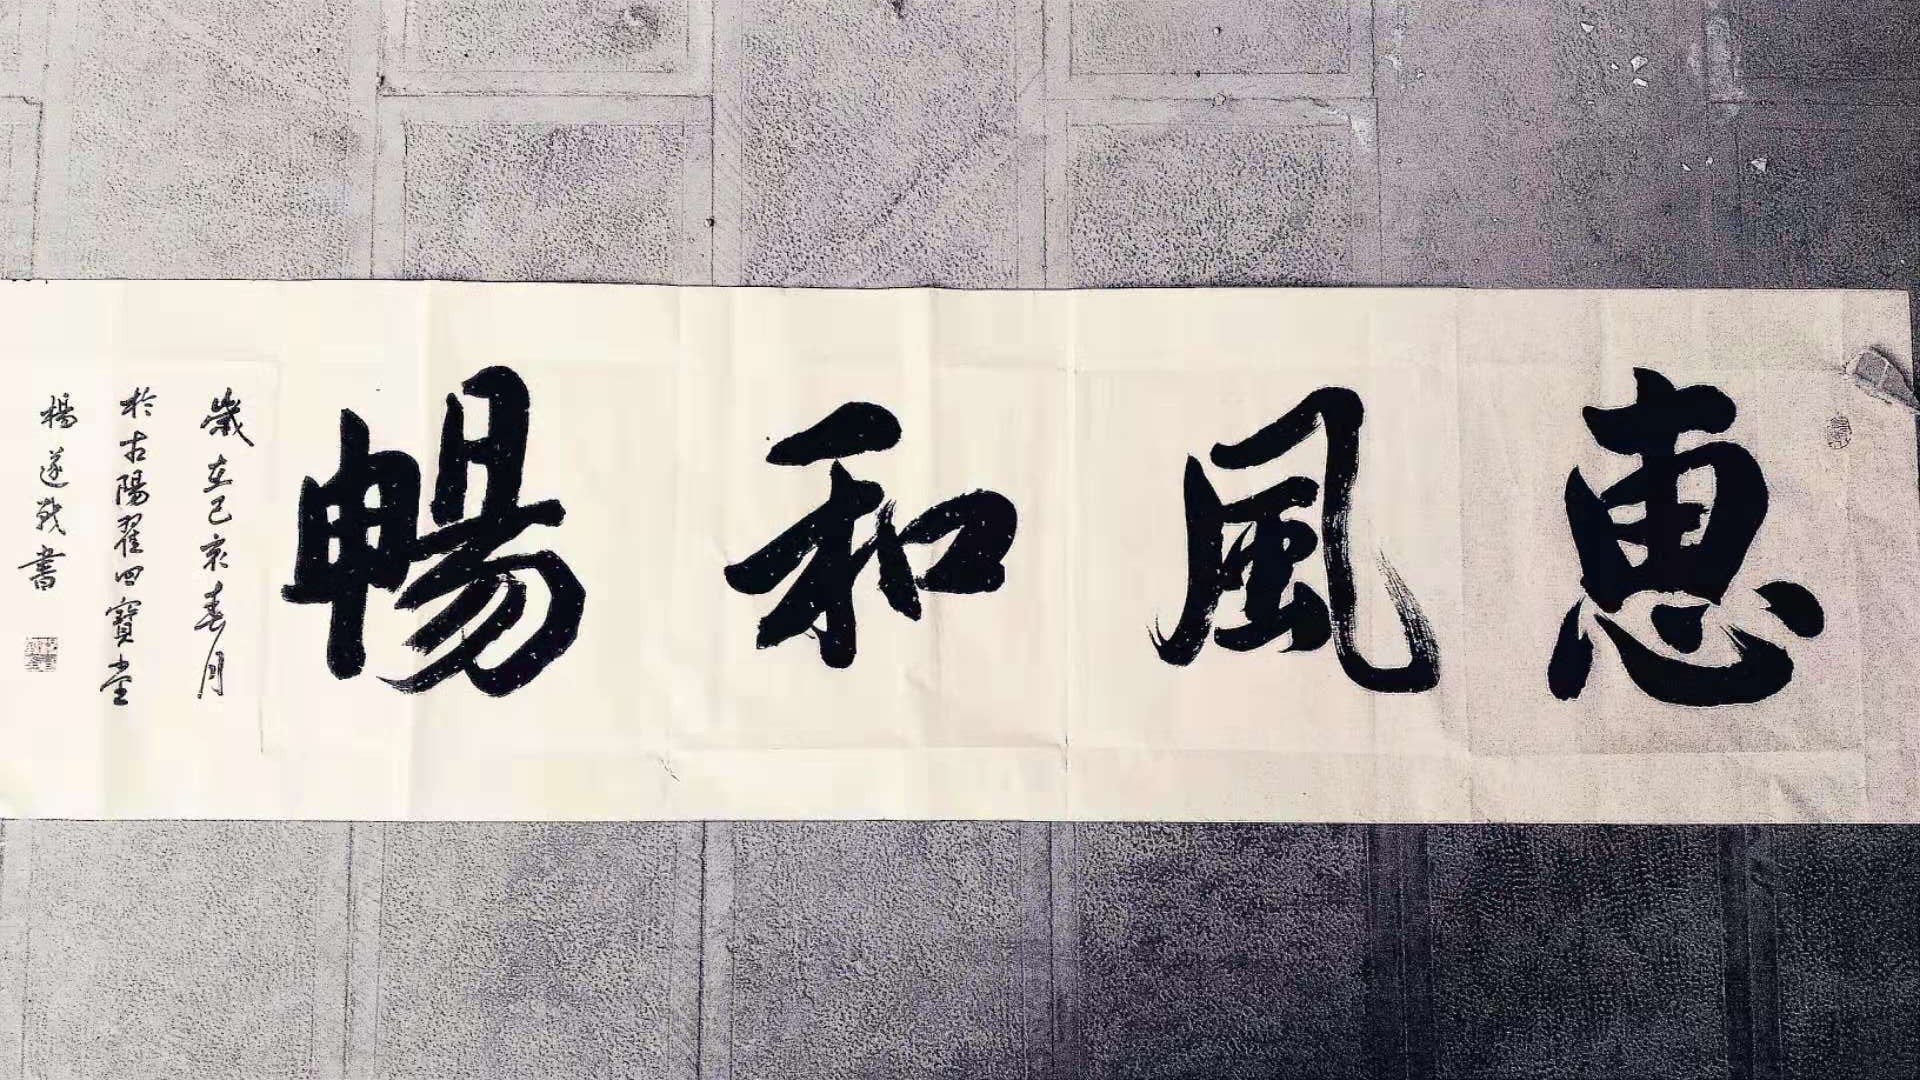 惠風和暢
歲在己亥春月
於古陽翟四寶堂
楊遂戰書